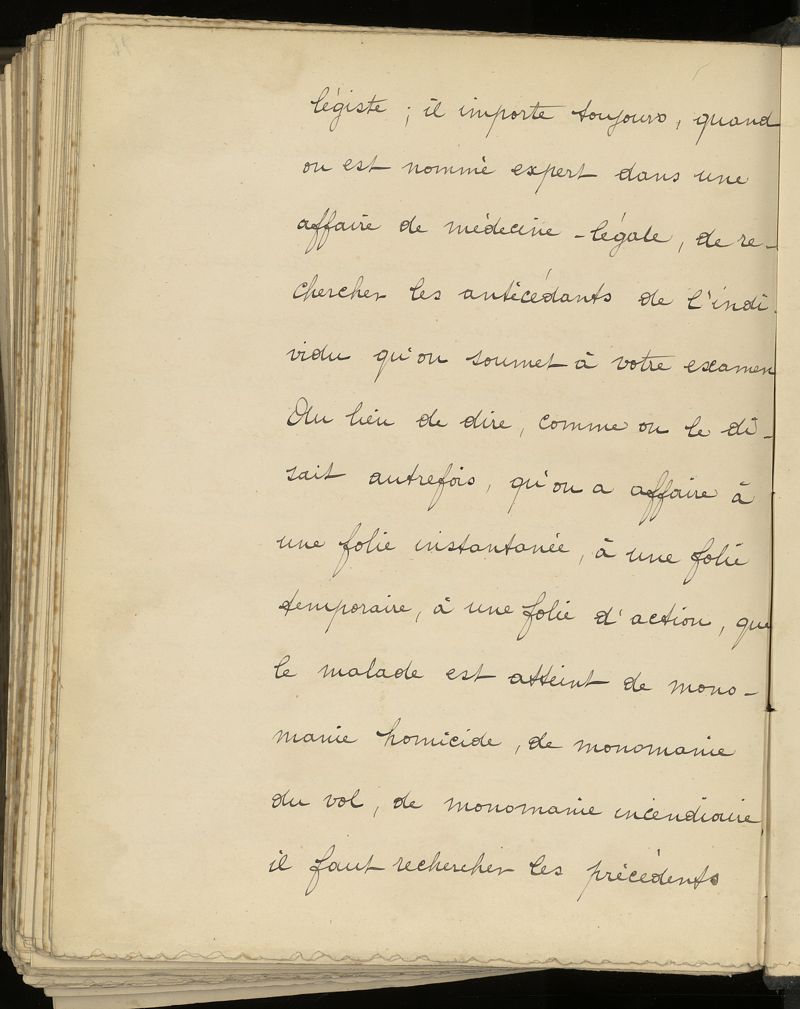 légiste ; il importe toujours, quand
on est nommé expert dans une
affaire de médecine-légale, de re-
chercher les antécédants de l'indi-
vidu qu'on soumet à votre examen
Au lieu de dire, comme on le di-
sait autrefois, qu'on a affaire à
une folie instantanée, à une folie
temporaire, à une folie d'action, que
le malade est atteint de mono-
manie homicide, de monomanie
du vol, de monomanie incendiaire
il faut rechercher les précédents